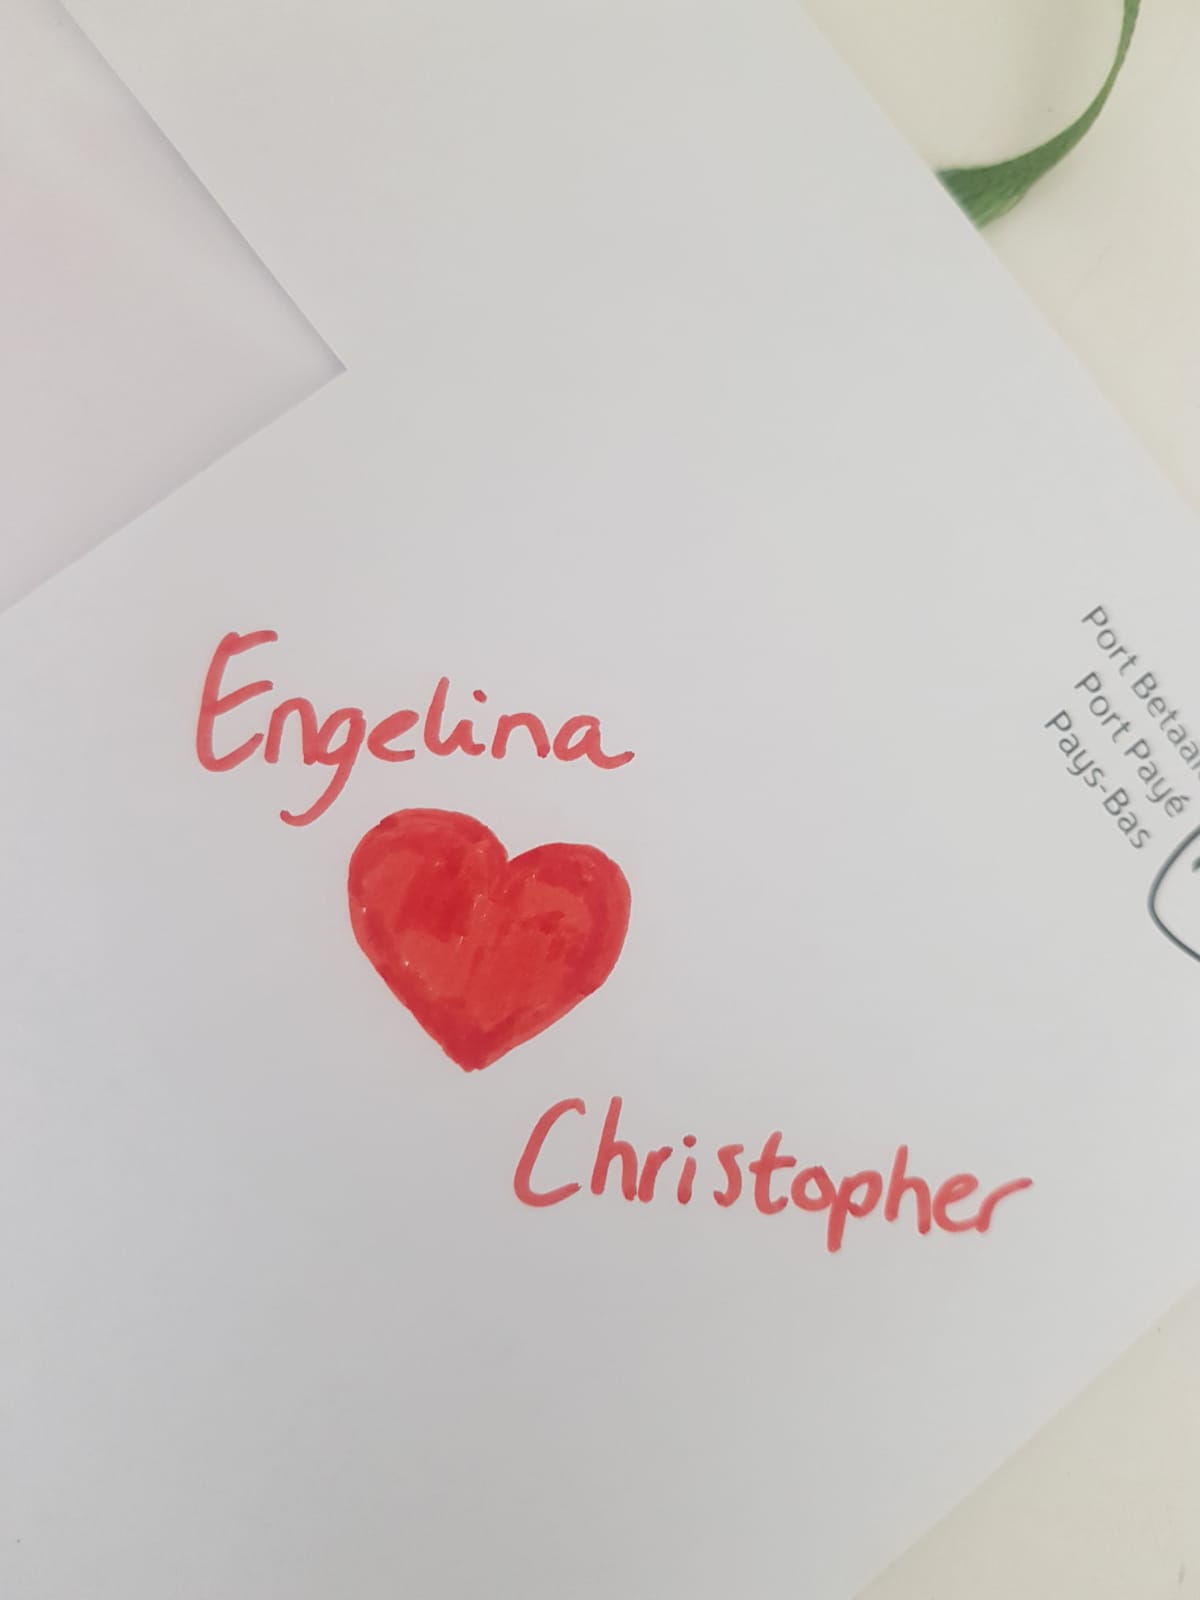 Engelina
Christopher
Port Betaal
Port Payé
Pays-Bas